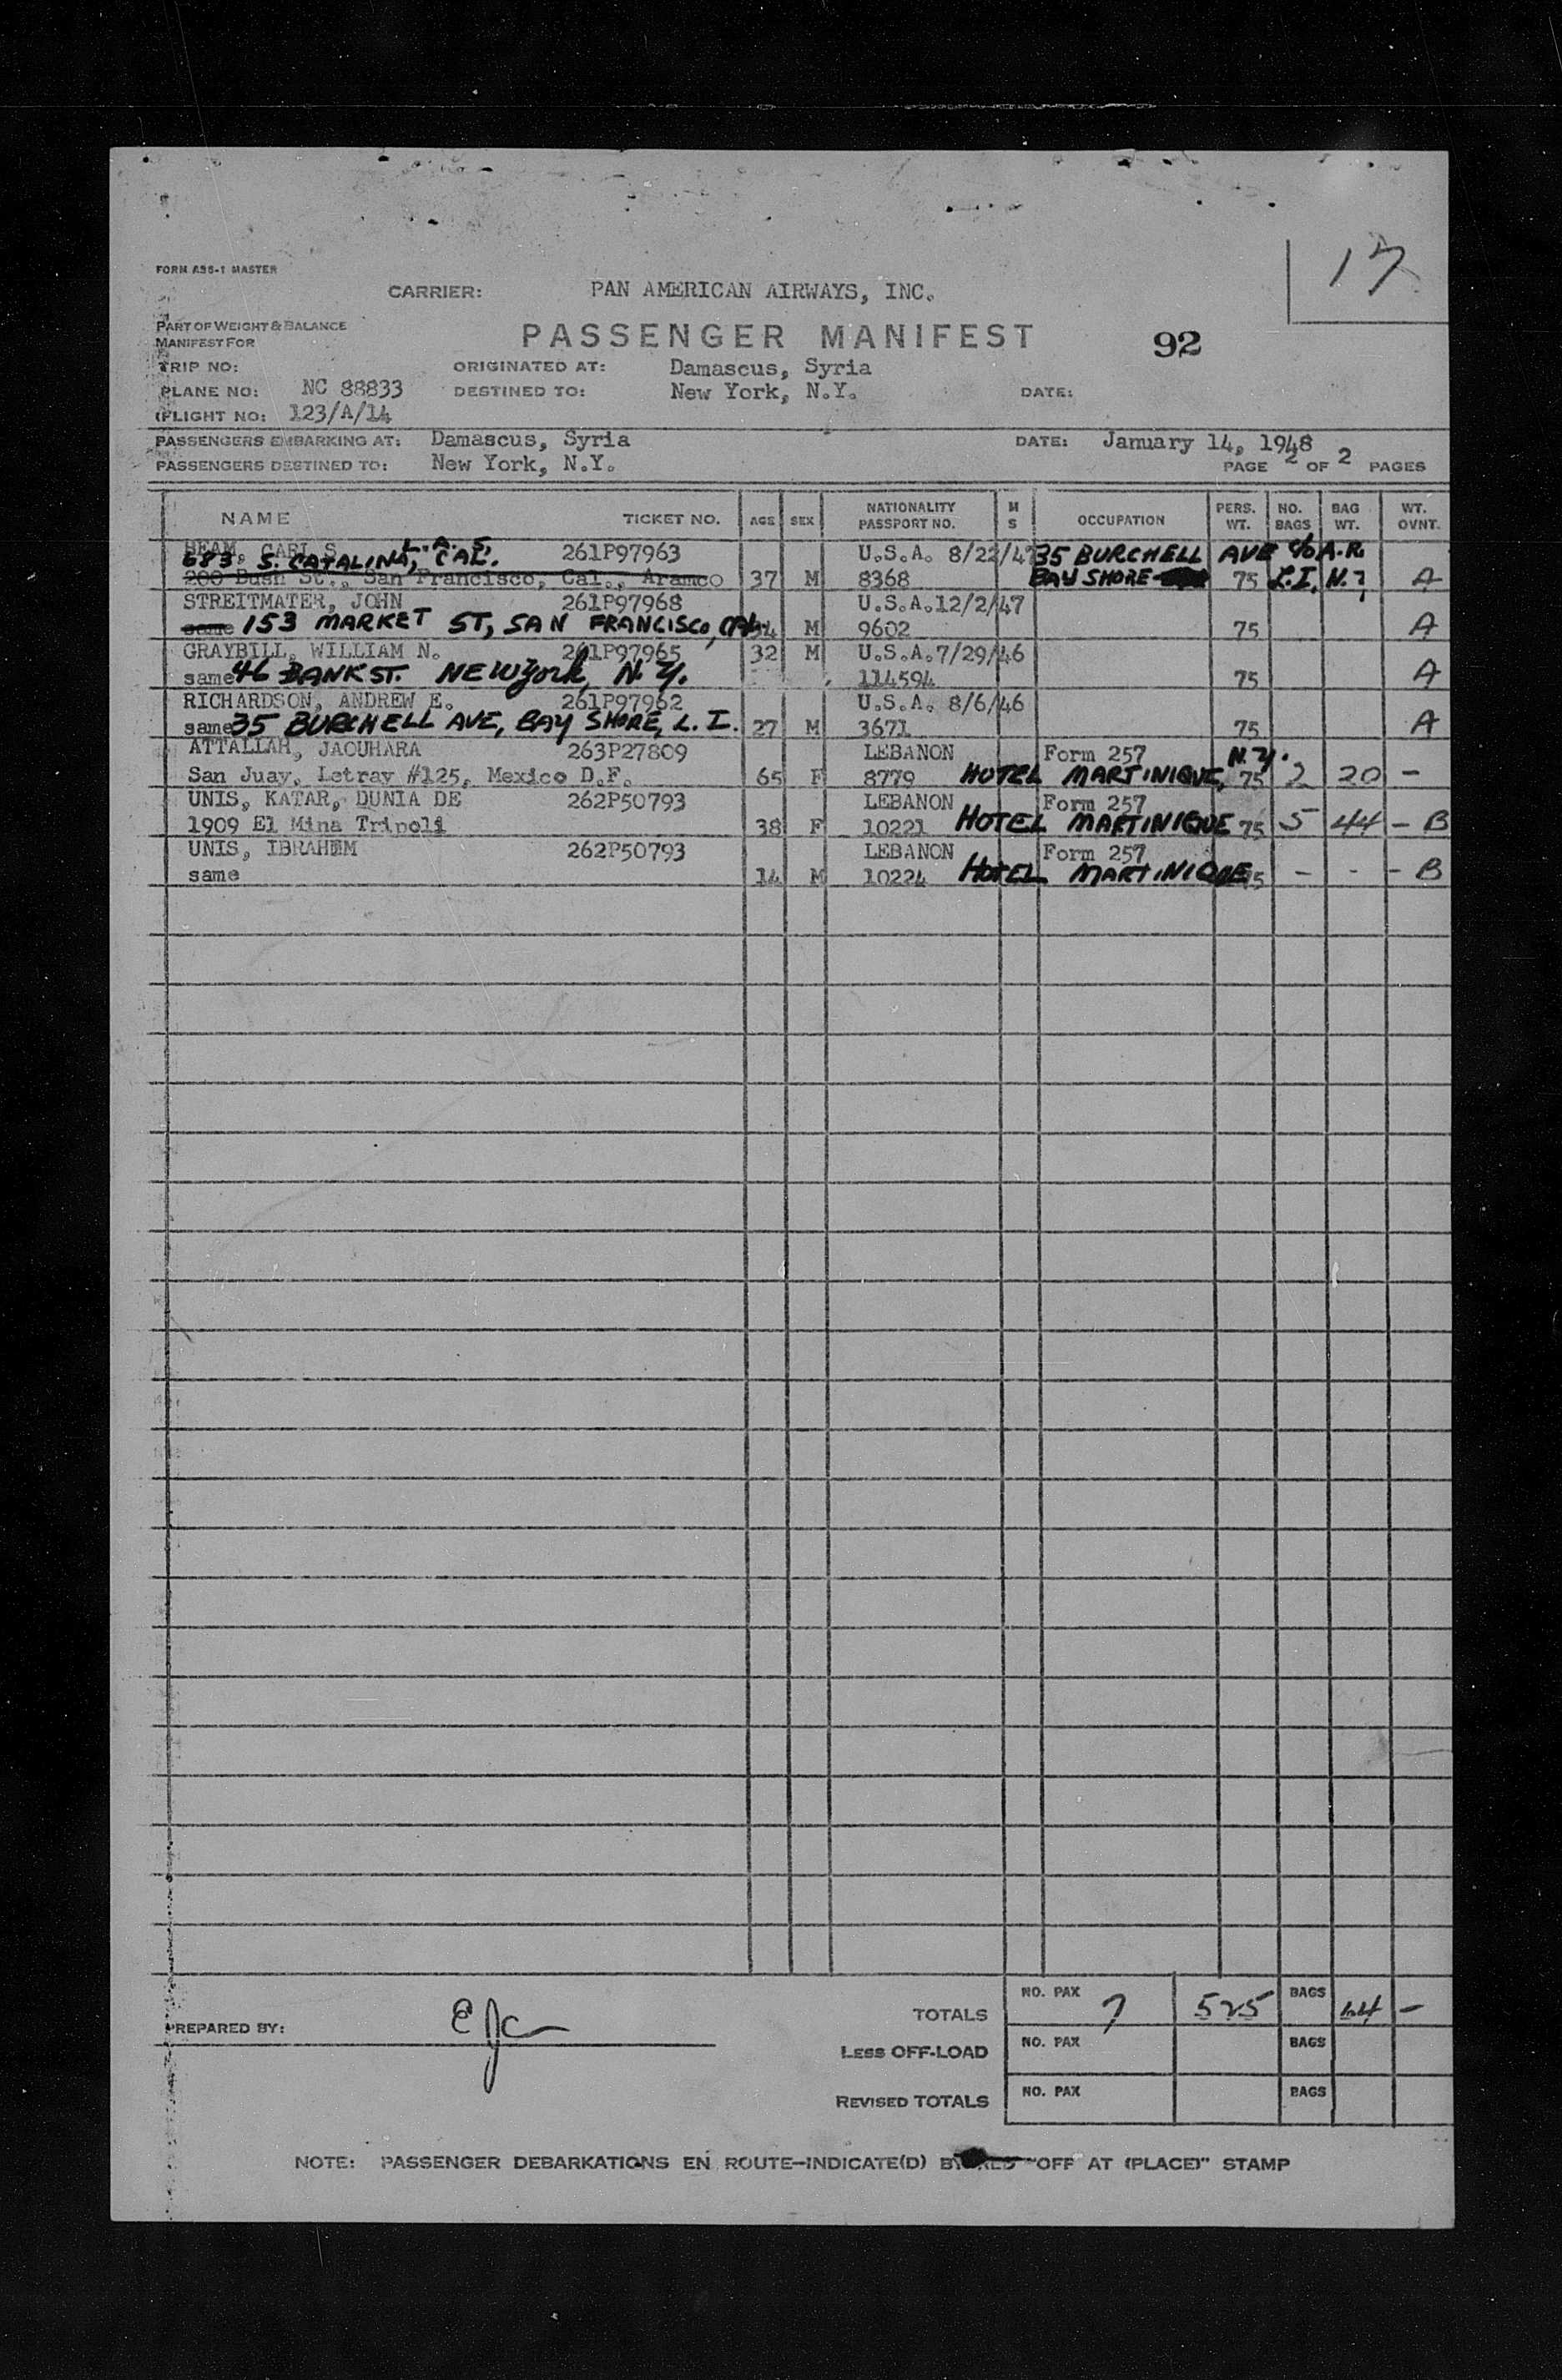 17
FORM A36-1 MASTER
CARRIER: PAN AMERICAN AIRWAYS, INC.
PART OF WEIGHT & BALANCE
MANIFEST FOR
PASSENGER MANIFEST 92
TRIP NO: ORIGINATED AT: Damascus, Syria
PLANE NO: NC 88833 DESTINED TO: New York, N.Y. DATE:
FLIGHT NO: 123/A/14
PASSENGERS EMBARKING AT: Damascus, Syria DATE: January 14, 1948
PASSENGERS DESTINED TO: New York, N.Y. PAGE 2 OF 2 PAGES
NAME TICKET NO. AGE SEX NATIONALITY PASSPORT NO. M S OCCUPATION PERS. WT. NO. BAGS BAG WT. WT. OVNT.
BEAM, CARL S. 261P97963 U.S.A. 8/22/47 35 BURCHELL AVE c/o A.R.
683 S. CATALINA, L.A. 5, CAL.
200 Bush St., San Francisco, Cal., Aramco 37 M 8368 BAY SHORE 75 L.I, N.Y A
STREITMATER, JOHN 261P97968 U.S.A.12/2/47
same 153 MARKET ST, SAN FRANCISCO, CAL. M 9602 75 A
GRAYBILL, WILLIAM N. 261P97965 32 M U.S.A.7/29/46
same 46 BANK ST. NEW York, N.Y. 114594 75 A
RICHARDSON, ANDREW E. 261P97962 U.S.A. 8/6/46
same 35 BURCHELL AVE, BAY SHORE, L.I. 27 M 3671 75 A
ATTALLAH, JAOUHARA 263P27809 LEBANON Form 257 N.Y.
San Juay, Letray #125, Mexico D.F. 65 F 8779 HOTEL MARTINIQUE, 75 2 20 -
UNIS, KATAR, DUNIA DE 262P50793 LEBANON Form 257
1909 El Mina Tripoli 38 F 10221 HOTEL MARTINIQUE 75 5 44 - B
UNIS, IBRAHIM 262P50793 LEBANON Form 257
same 14 M 10224 HOTEL MARTINIQUE 75 - - - B
TOTALS NO. PAX 7 525 BAGS 64 -
PREPARED BY:
LESS OFF-LOAD NO. PAX BAGS
REVISED TOTALS NO. PAX BAGS
NOTE: PASSENGER DEBARKATIONS EN ROUTE-INDICATE(D) BY RED "OFF AT (PLACE)" STAMP